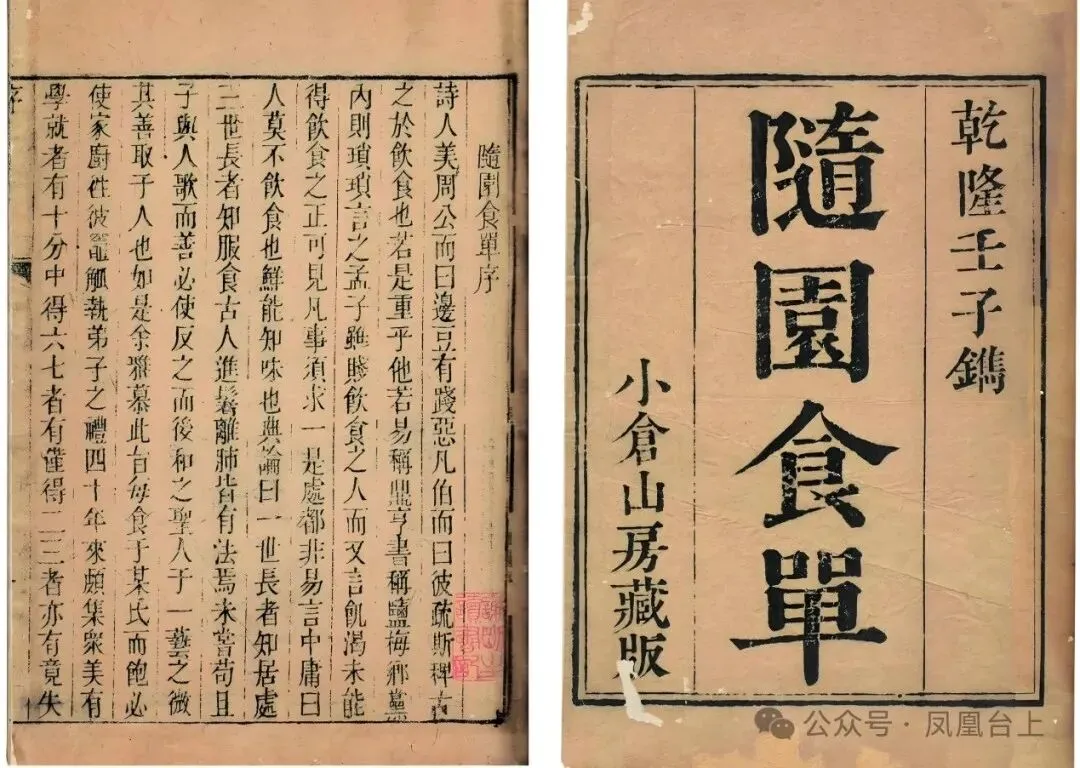 乾隆壬子鐫
隨園食單
小倉山房藏版
隨園食單序
詩人美周公而曰邊豆有踐惡凡伯而曰彼疏斯稗古
之於飲食也若是重乎他若易稱鼎亨書稱鹽梅鄉黨
內則瑣瑣言之孟子雖賤飲食之人而又言飢渴未能
得飲食之正可見凡事須求一是處都非易言中庸曰
人莫不飲食也鮮能知味也典論曰一世長者知居處
三世長者知服食古人進鬐離肺皆有法焉未嘗苟且
子與人歌而善必使反之而後和之聖人于一藝之微
其善取于人也如是余雅慕此旨每食于某氏而飽必
使家廚往彼竈觚執弟子之禮四十年來頗集衆美有
學就者有十分中得六七者有僅得二三者亦有竟失
序
公众号·凤凰台上